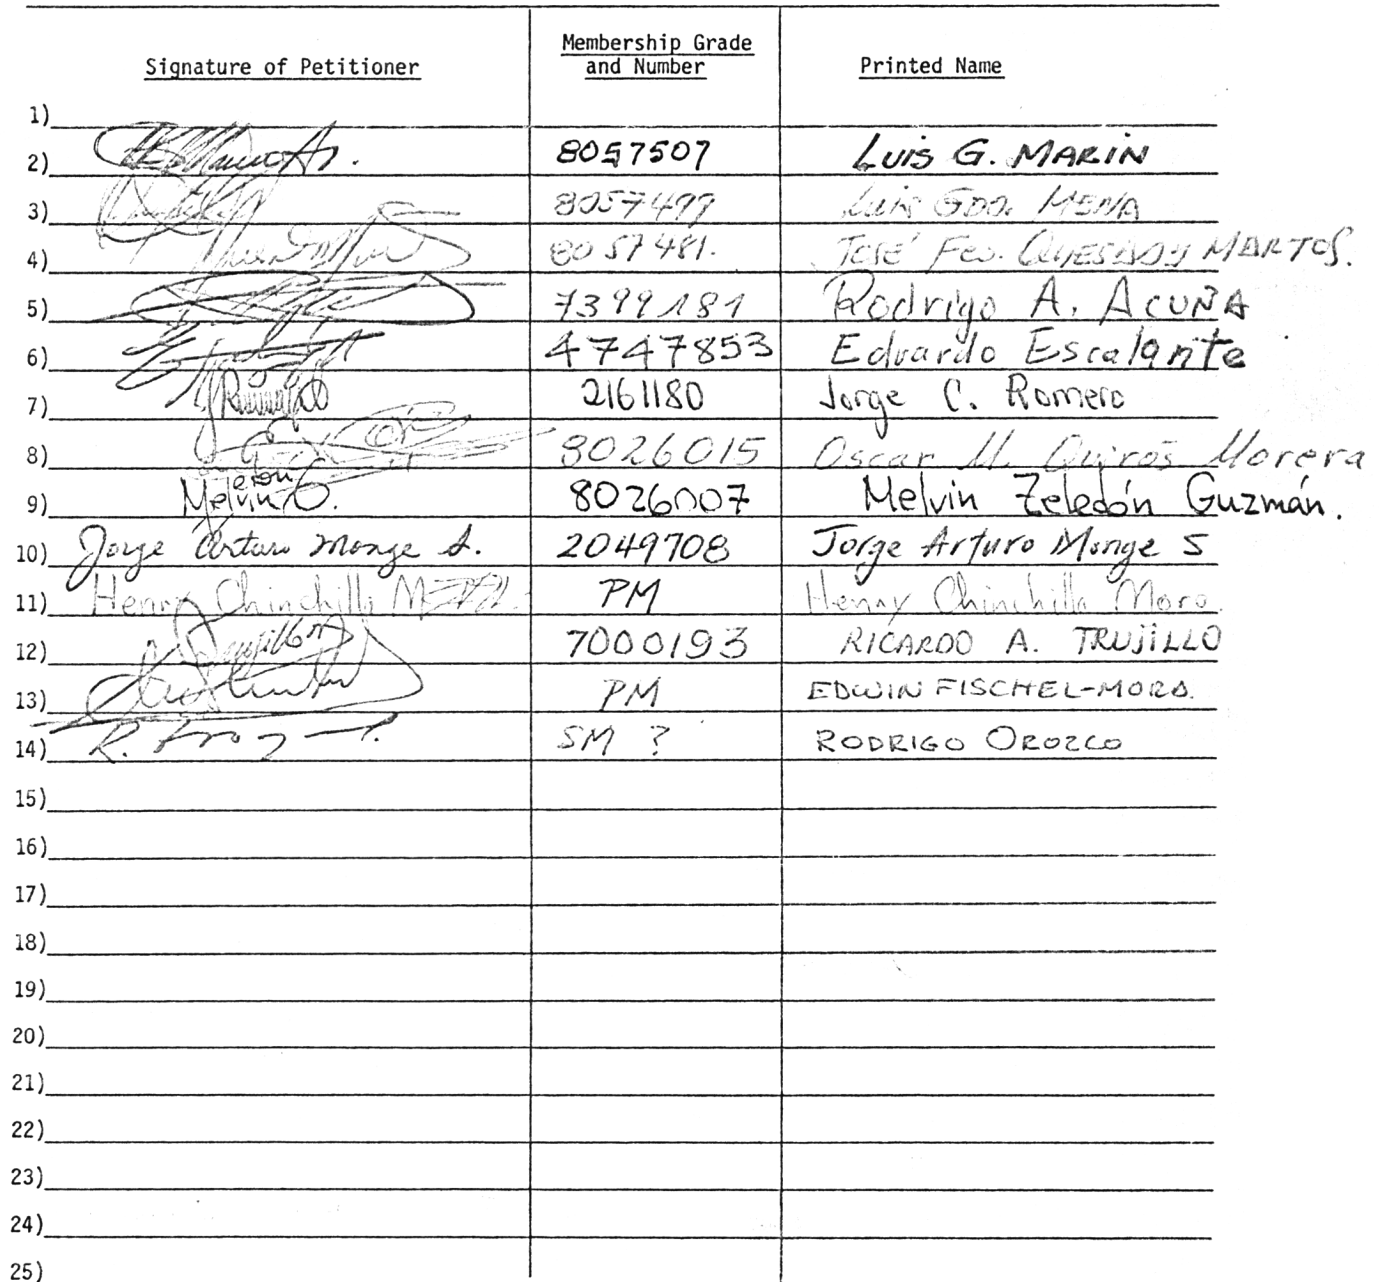 Signature of Petitioner Membership Grade and Number Printed Name
1)
2) 8057507 LUIS G. MARIN
3) 8057499 Luis GDO. MENA
4) 8057481. JOSÉ Fco. QUESADA Y MARTOS.
5) 7399181 Rodrigo A. ACUÑA
6) 4747853 Eduardo Escalante
7) 2161180 Jorge C. Romero
8) 8026015 Oscar M. Quirós Morera
9) Melvin 8026007 Melvin Zeledón Guzmán.
10) Jorge Arturo Monge S. 2049708 Jorge Arturo Monge S
11) Henry Chinchilla PM Henry Chinchilla Mora.
12) Trujillo 7000193 RICARDO A. TRUJILLO
13) PM EDWIN FISCHEL-MORA.
14) SM ? RODRIGO OROZCO
15)
16)
17)
18)
19)
20)
21)
22)
23)
24)
25)